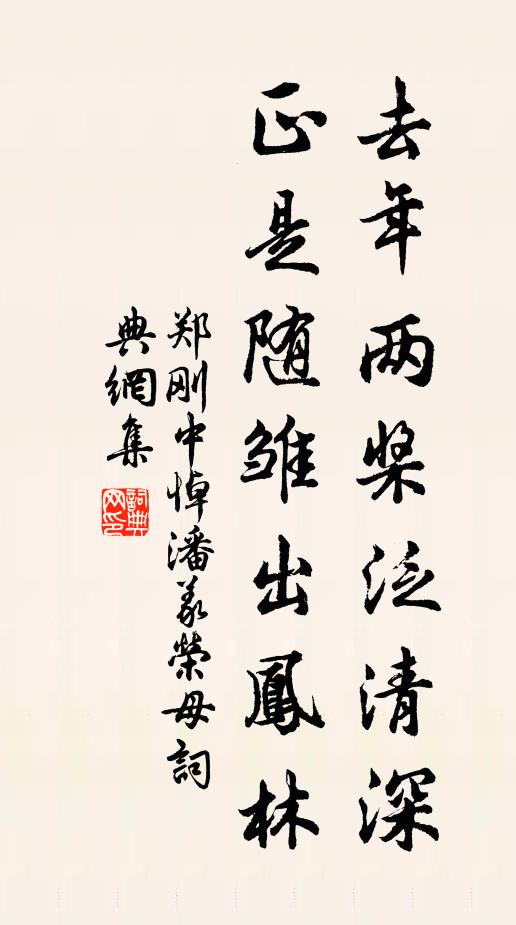 去年两桨泛清深
正是随雏出鳳林
郑刚中悼潘義榮母詞
典網集
詞典网印